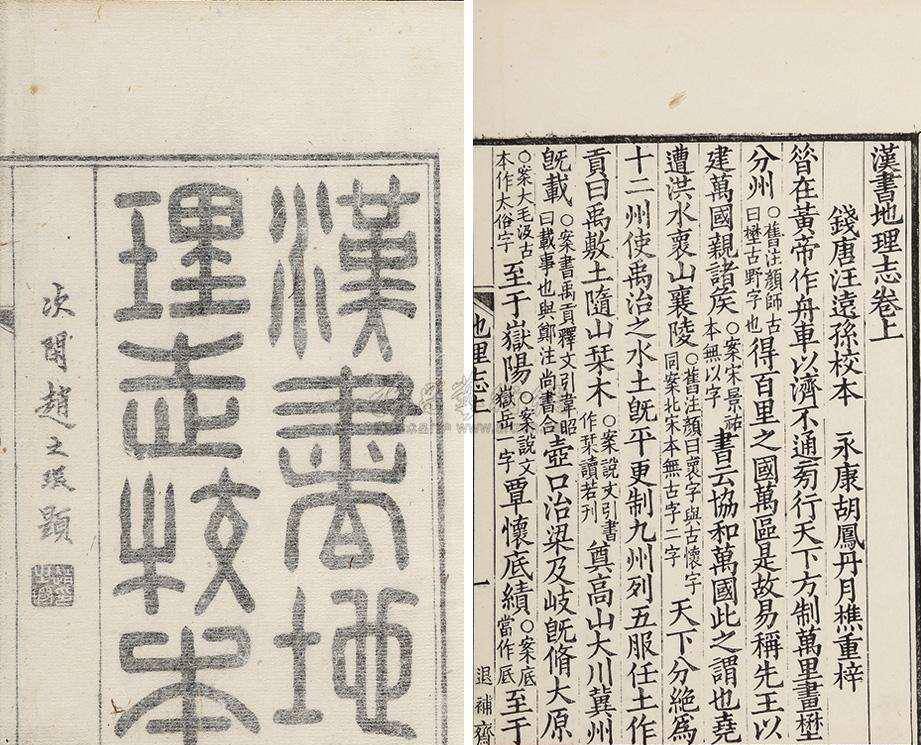 漢書地
理志校本
次閑趙之琛題
漢書地理志卷上
錢唐汪遠孫校本 永康胡鳳丹月樵重梓
昝在黃帝作舟車以濟不通旁行天下方制萬里畫壄
分州○舊注顏師古曰壄古野字也得百里之國萬區是故易稱先王以
建萬國親諸矦○案宋景祐本無以字書云協和萬國此之謂也堯
遭洪水褱山襄陵○舊注顏曰褱字與古懷字同案北宋本無古字二字天下分絕爲
十二州使禹治之水土旣平更制九州列五服任土作
貢曰禹敷土隨山栞木○案說文引書作栞讀若刊奠高山大川冀州
旣載○案書禹貢釋文引韋昭曰載事也與鄭注尚書合壺口治梁及岐旣脩大原
○案大毛汲古本作太俗字至于嶽陽○案說文嶽岳一字覃懷底績○案底當作厎至于
地理志上 一 退補齋